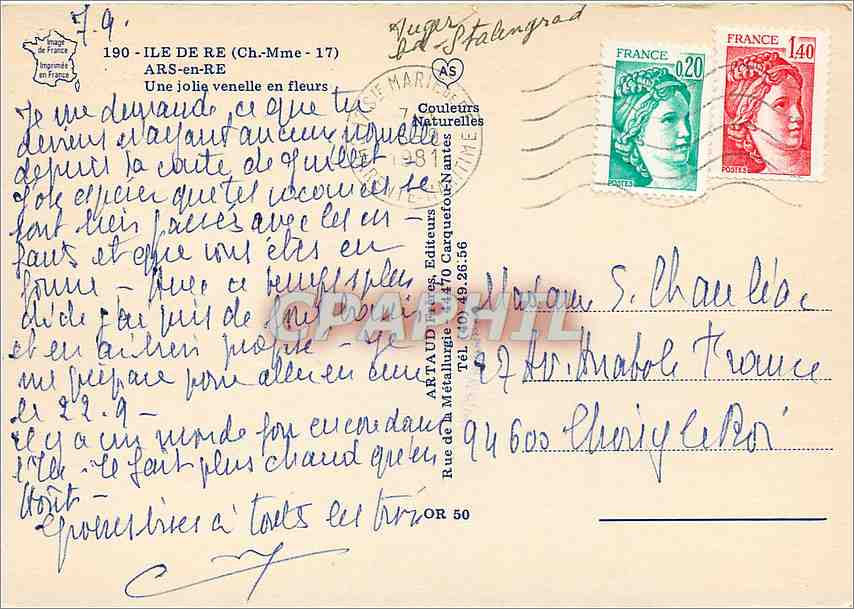 7.9.
Image
de France
Imprimée
en France
190 - ILE DE RE (Ch.-Mme - 17)
ARS-en-RE
Une jolie venelle en fleurs
Je me demande ce que tu
deviens n'ayant aucune nouvelle
depuis la carte de Juillet -
J'ose espérer que tes vacances se
sont bien passées avec les en-
fants et que vous êtes en
forme - Avec ce temps splen-
dide j'ai pris de
et en ai bien profité - Je
me prépare pour aller en cure
le 22.9 -
il y a un monde fou encore dans
l'île. Il fait plus chaud qu'en
Août -
Grosses bises à toutes les trois
ad - Stalingrad
AS
Couleurs
Naturelles
ARTAUD Frères, Editeurs
Rue de la Métallurgie - 44470 Carquefou-Nantes
Tél. (40) 49.26.56
OR 50
STE MARIE DE RE
7
1981
CHARENTE-MARITIME
FRANCE
0,20
POSTES
FRANCE
1,40
POSTES
CPAPHIL
Madame S. Chauléac
27 Av. Anatole France
94600 Choisy le Roi